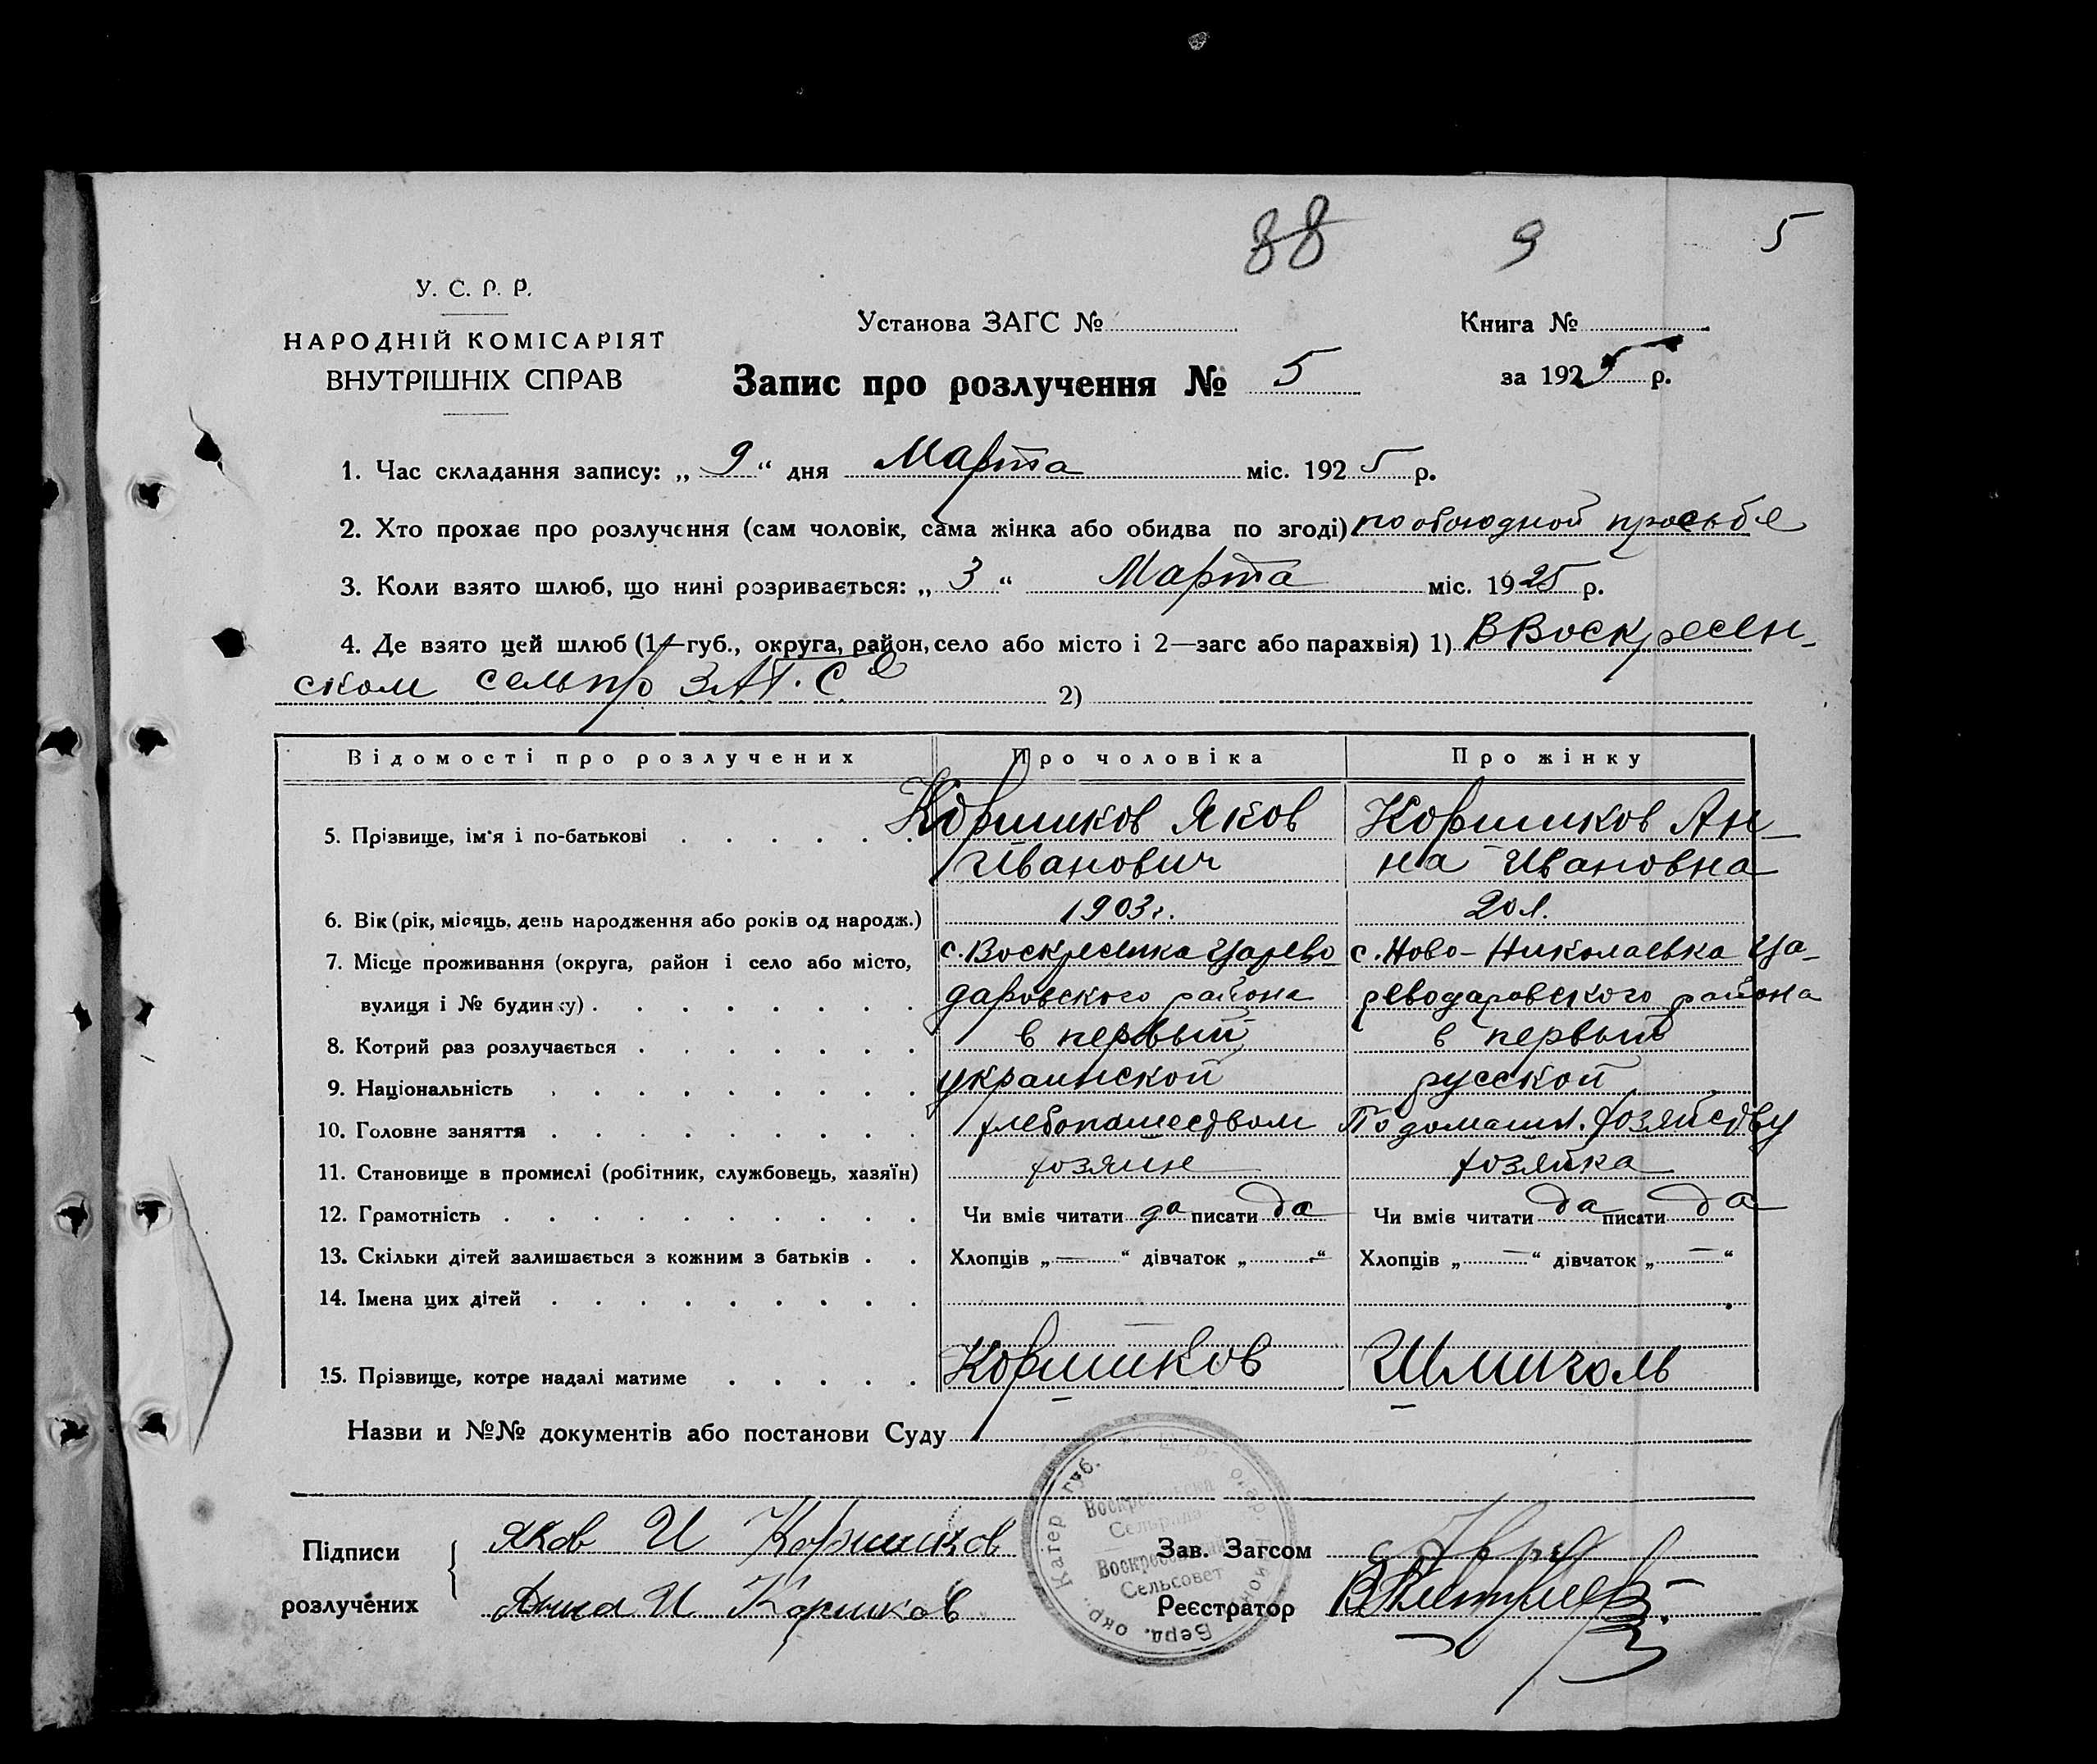 88 9 5
У. С. Р. Р.
НАРОДНІЙ КОМІСАРІЯТ
ВНУТРІШНІХ СПРАВ
Установа ЗАГС №
Книга №
Запис про розлучення № 5
за 1925 р.
1. Час складання запису: „ 9 “ дня Марта міс. 1925 р.
2. Хто прохає про розлучення (сам чоловік, сама жінка або обидва по згоді) по обоюдной просьбе
3. Коли взято шлюб, що нині розривається: „ 3 “ Марта міс. 1925 р.
4. Де взято цей шлюб (1—губ., округа, район, село або місто і 2—загс або парахвія) 1) В Воскресен-
ском сельпр ЗАГ.С 2)
Відомості про розлучених Про чоловіка Про жінку
5. Прізвище, ім'я і по-батькові Коршиков Яков Коршиков Ан-
Иванович на Ивановна
6. Вік (рік, місяць, день народження або років од народж.) 1903 г. 20 л.
7. Місце проживання (округа, район і село або місто, с. Воскресенка Царево с. Ново-Николаевка Ца-
вулиця і № будинку) даровского района реводаровского района
8. Котрий раз розлучається в первый в первый
9. Національність украинской русской
10. Головне заняття хлебопашеством По домашн. хозяйству
11. Становище в промислі (робітник, службовець, хазяїн) хозяин хозяйка
12. Грамотність Чи вміє читати да писати да Чи вміє читати да писати да
13. Скільки дітей залишається з кожним з батьків Хлопців „ — “ дівчаток „ — “ Хлопців „ — “ дівчаток „ — “
14. Імена цих дітей
15. Прізвище, котре надалі матиме Коршиков Шмиголь
Назви и №№ документів або постанови Суду
Катер губ. Берд. окр.
Сельрада
Сельсовет
Підписи
розлучених
Яков И Коршиков
Анна И Коршиков
Зав. Загсом
Реєстратор